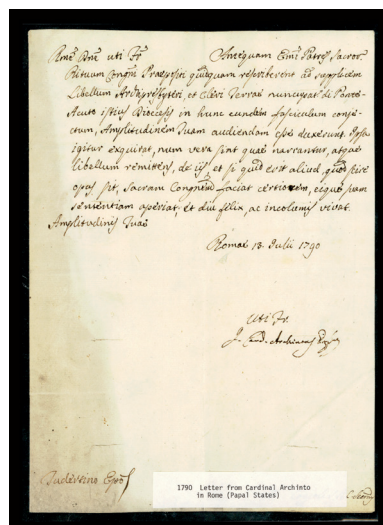 Rme Dne uti Fr Antequam Emi Patres Sacror.
Rituum Congni Praepositi quidquam rescriberent ad supplicem
Libellum Archipresbyteri, et Cleri Terrae nuncupatae di Ponte-
Acuto istius Dioecesis in hunc eundem fasciculum conje-
ctum, Amplitudinem Tuam audiendam esse duxerunt. Ipsa
igitur exquirat, num vera sint quae narrantur, atque
libellum remittens, de iis, et si quid erit aliud, quod scire
opus sit, Sacram Congnem faciat certiorem, eique suam
sententiam aperiat, et diu felix, ac incolumis vivat.
Amplitudinis Tuae
Romae 13. Julii 1790
Uti Fr.
J. Card. Archintus
Tudertino Epo
1790 Letter from Cardinal Archinto
in Rome (Papal States)